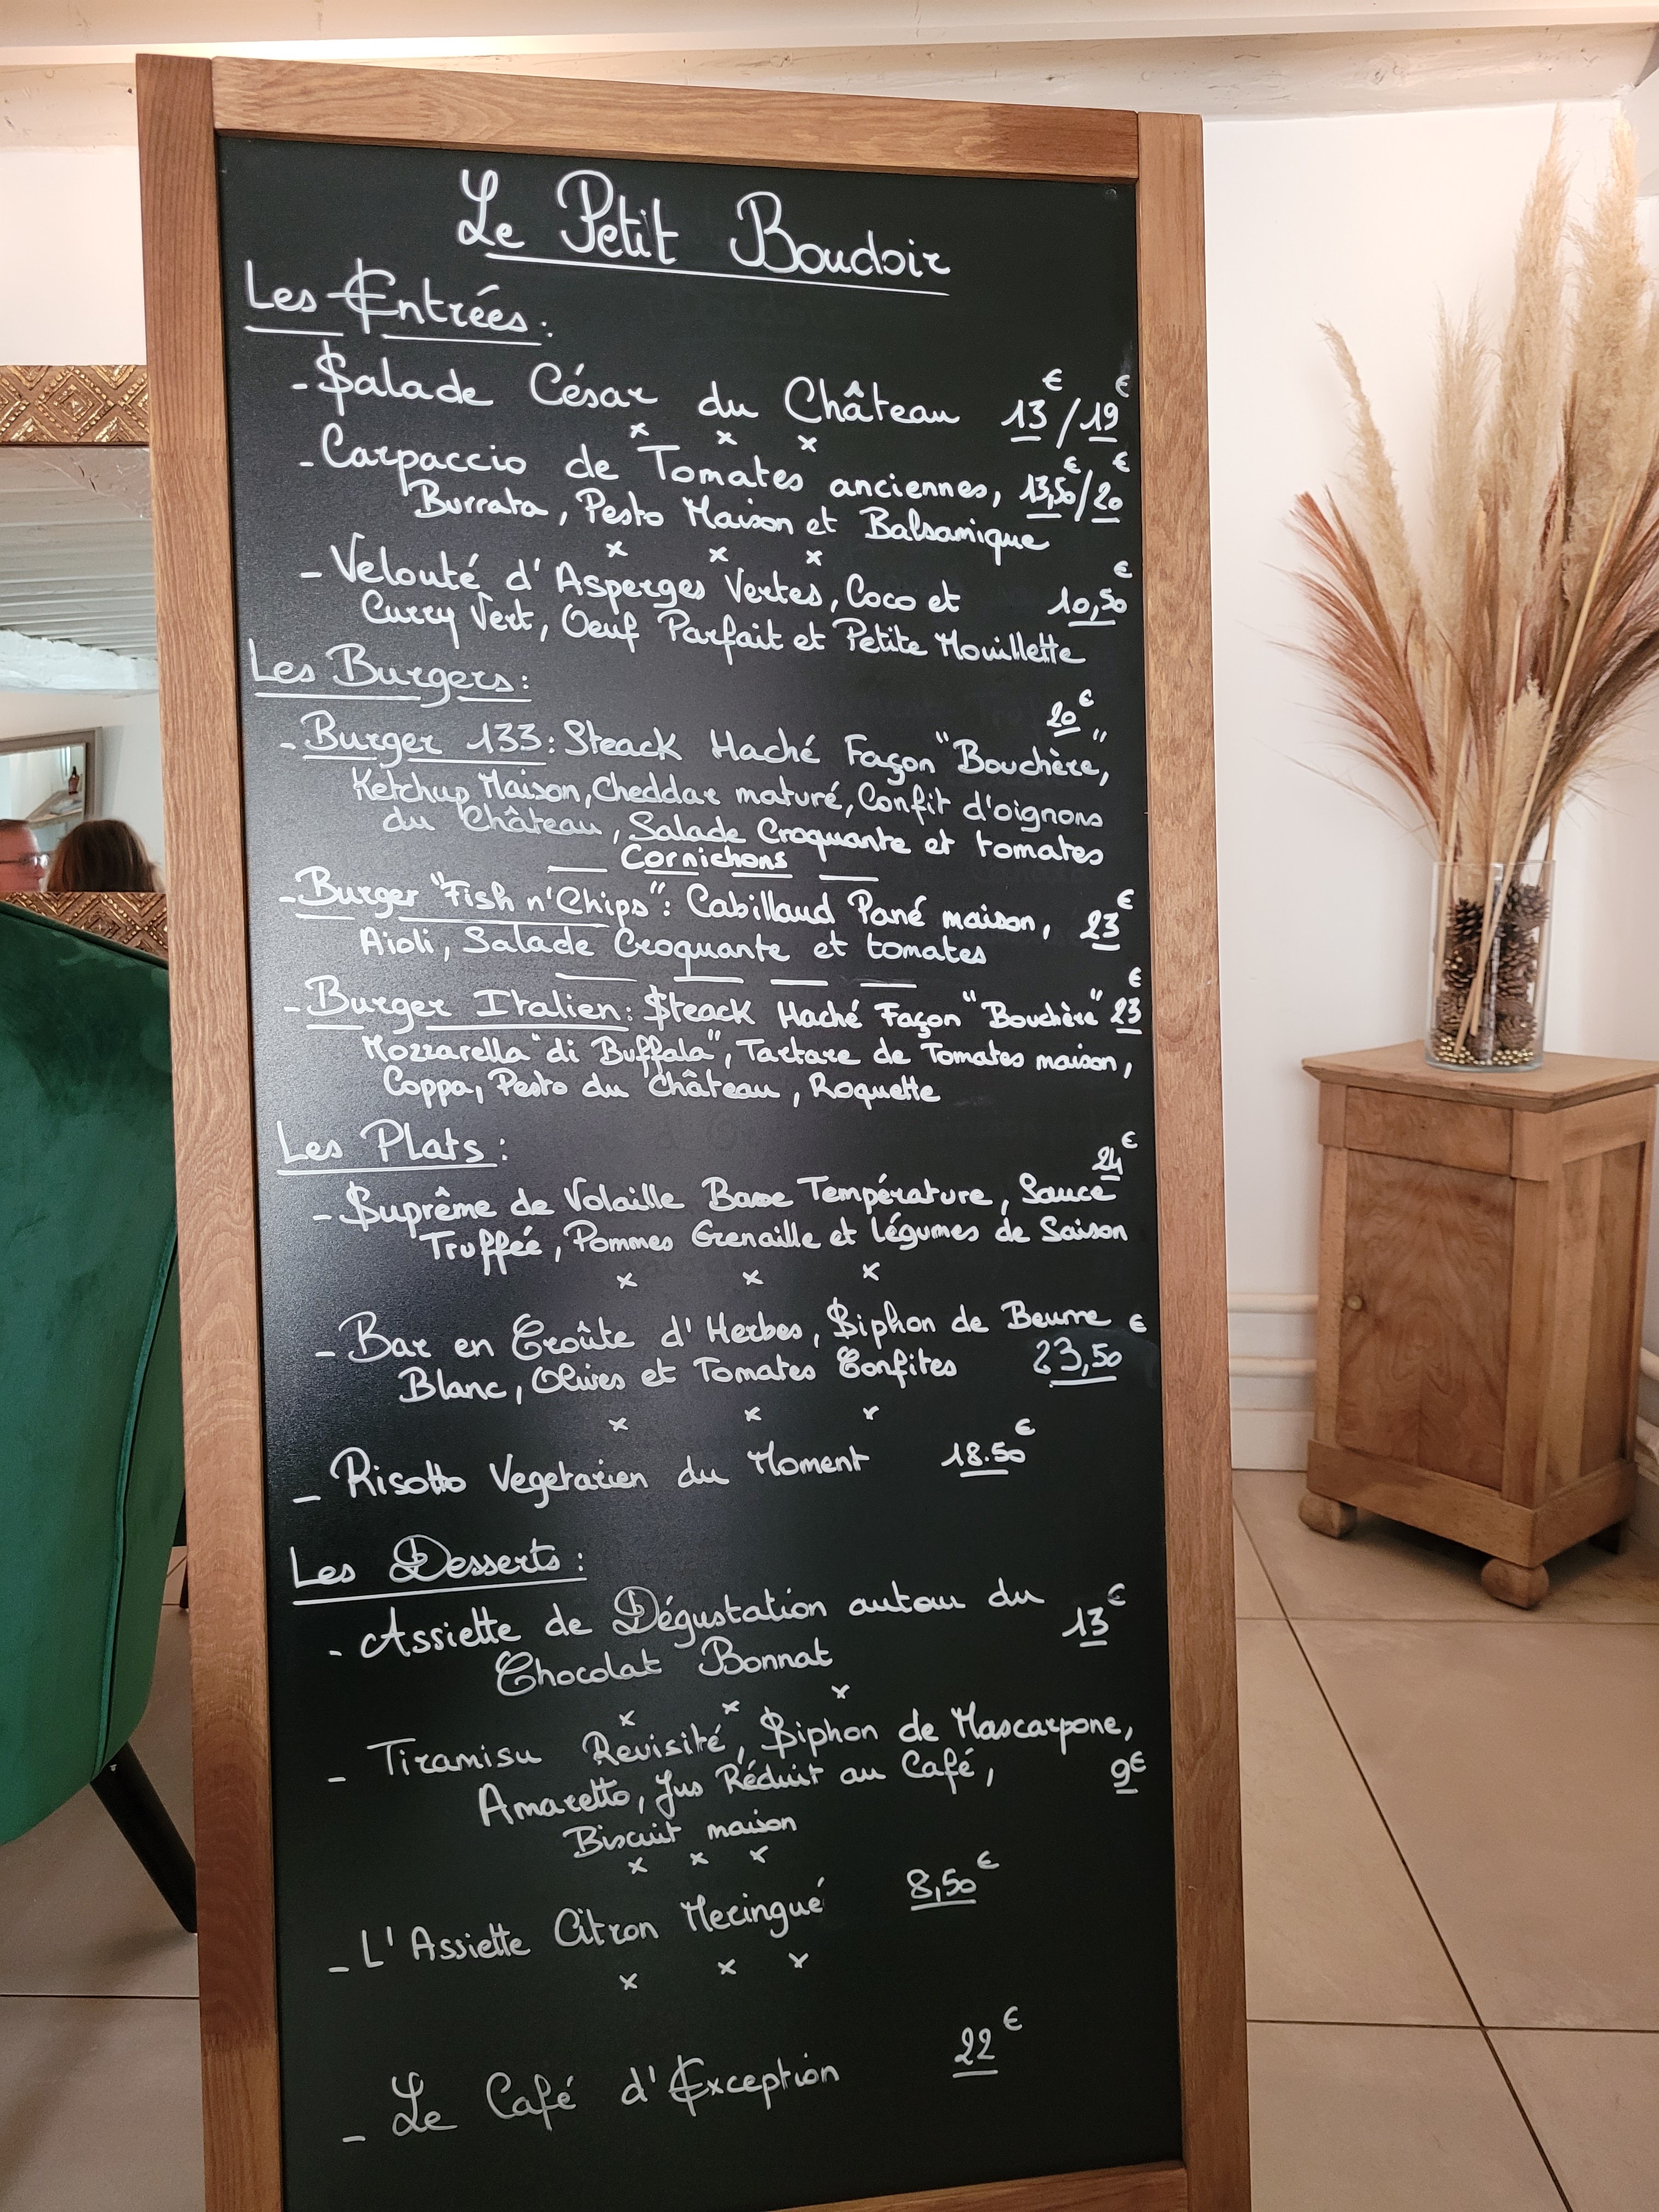 Le Petit Boudoir
Les Entrées :
- Salade César du Château 13€/19€
x x x
- Carpaccio de Tomates anciennes, 13,50€/20€
Burrata, Pesto Maison et Balsamique
x x x
- Velouté d'Asperges Vertes, Coco et 10,50€
Curry Vert, Oeuf Parfait et Petite Mouillette
Les Burgers :
20€
- Burger 133 : Steack Haché Façon "Bouchère",
Ketchup Maison, Cheddar maturé, Confit d'oignons
du Château, Salade Croquante et tomates
Cornichons
- Burger "Fish n'Chips" : Cabillaud Pané maison, 23€
Aioli, Salade Croquante et tomates
- Burger Italien : Steack Haché Façon "Bouchère" 23€
Mozzarella "di Buffala", Tartare de Tomates maison,
Coppa, Pesto du Château, Roquette
Les Plats :
24€
- Suprême de Volaille Basse Température, Sauce
Truffée, Pommes Grenaille et légumes de Saison
x x x
- Bar en Croûte d'Herbes, Siphon de Beurre
Blanc, Olives et Tomates Confites 23,50€
x x x
- Risotto Vegetarien du Moment 18.50€
Les Desserts :
- Assiette de Dégustation autour du 13€
Chocolat Bonnat
x x x
- Tiramisu Revisité, Siphon de Mascarpone,
Amaretto, Jus Réduit au Café, 9€
Biscuit maison
x x x
- L'Assiette Citron Meringué 8,50€
x x x
- Le Café d'Exception 22€